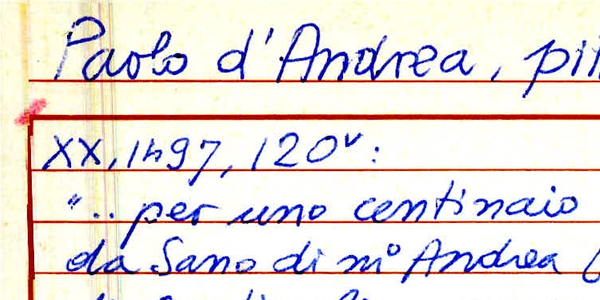 Paolo d'Andrea,
XX, 1497, 120v:
"... per uno centinaio
da Sano di m° Andrea